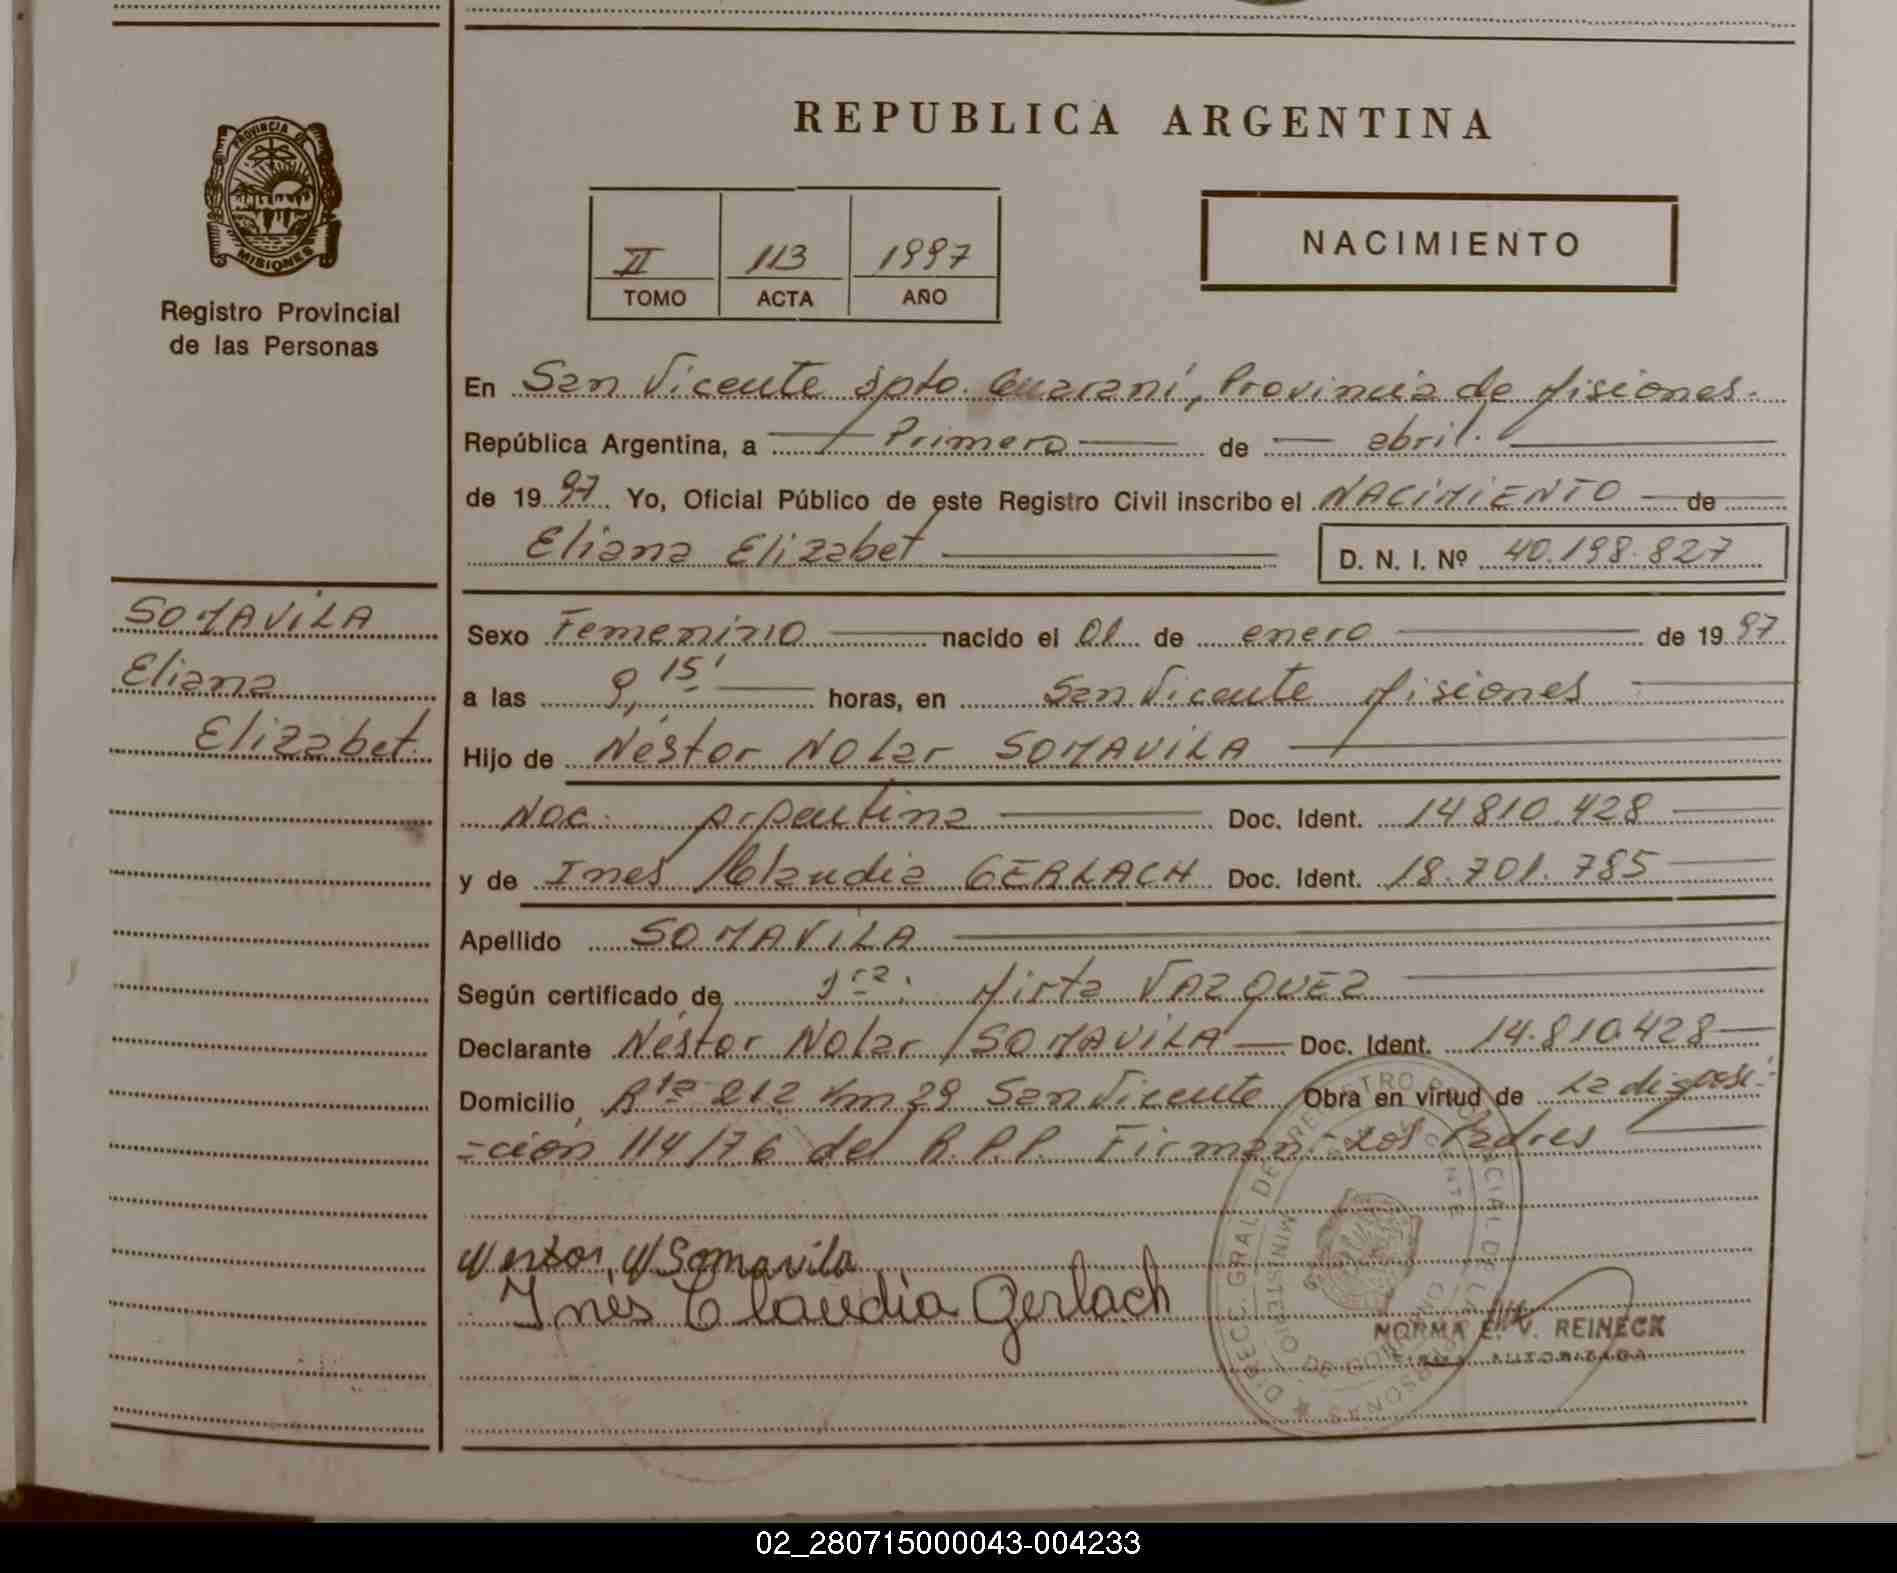 REPUBLICA ARGENTINA
PROVINCIA DE
MISIONES
Registro Provincial
de las Personas
II 113 1997
TOMO ACTA AÑO
NACIMIENTO
En San Vicente Dpto. Guaraní, Provincia de Misiones.
República Argentina, a Primero de abril.
de 1997 Yo, Oficial Público de este Registro Civil inscribo el NACIMIENTO de
Eliana Elizabet D. N. I. Nº 40.198.827
SOMAVILA
Eliana
Elizabet.
Sexo Femenino nacido el 01 de enero de 1997
a las 9,15' horas, en San Vicente Misiones
Hijo de Néstor Nolar SOMAVILA
Nac. Argentina Doc. Ident. 14810.428
y de Ines Claudia GERLACH Doc. Ident. 18.701.785
Apellido SOMAVILA
Según certificado de Dra. Mirta VAZQUEZ
Declarante Néstor Nolar SOMAVILA Doc. Ident. 14.810.428
Domicilio Rta 212 Km 29 San Vicente Obra en virtud de La disposi-
-ción 114/76 del R.P.P. Firman: Los Padres
Nestor N Somavila
Inés Claudia Gerlach
DIRECC. GRAL. DEL REGISTRO PROVINCIAL DE LAS PERSONAS
MINISTERIO DE GOBIERNO
NORMA E. V. REINECK
FIRMA AUTORIZADA
02_280715000043-004233